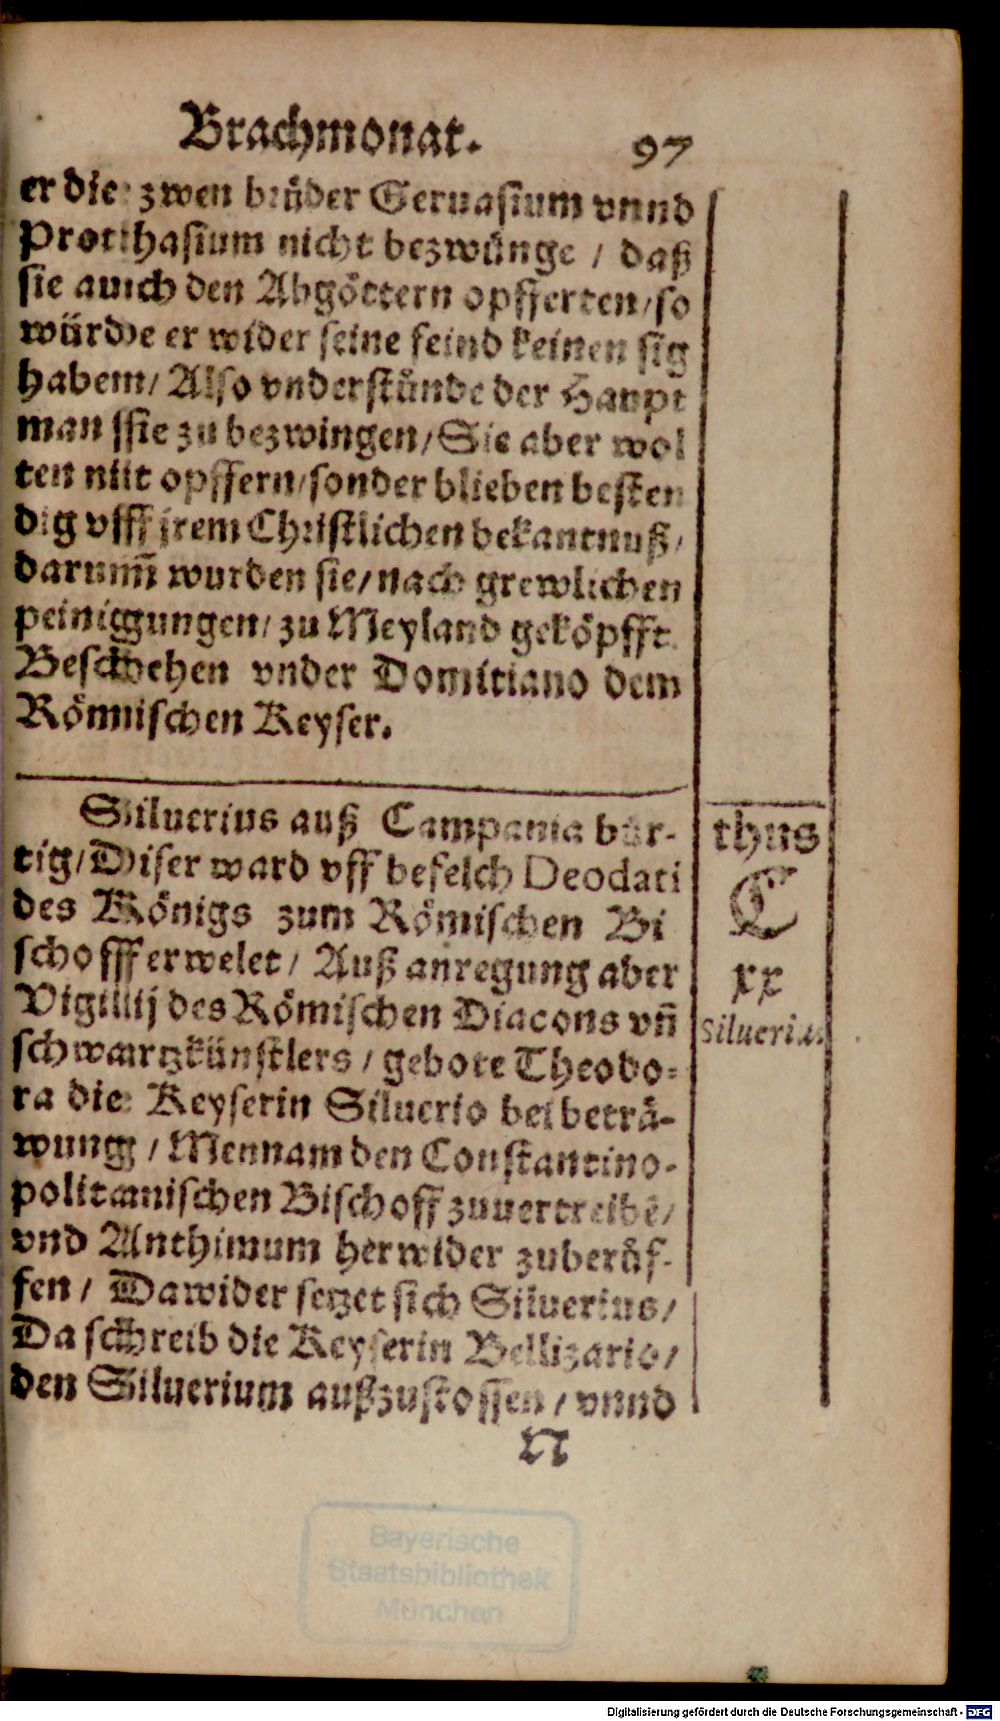 Brachmonat. 97
er die zwen brüder Geruasium vnnd
Protthasium nicht bezwünge / daß
sie auch den Abgöttern opfferten / so
würde er wider seine feind keinen sig
haben / Also vnderstůnde der Haupt
man sie zu bezwingen / Sie aber wol
ten nit opffern / sonder blieben besten
dig vff jrem Christlichen bekantnuß /
darum̃ wurden sie / nach grewlichen
peinigungen / zu Meyland geköpfft.
Beschehen vnder Domitiano dem
Römischen Keyser.
Siluerius auß Campania bür-
tig / Diser ward vff befelch Deodati
des Königs zum Römischen Bi
schoff erwelet / Auß anregung aber
Vigilij des Römischen Diacons vñ
schwartzkünstlers / gebote Theodo-
ra die Keyserin Siluerio bei beträ-
wung / Mennam den Constantino-
politanischen Bischoff zuuertreibẽ /
vnd Anthimum herwider zuberůf-
fen / Dawider setzet sich Siluerius /
Da schreib die Keyserin Bellizario /
den Siluerium außzustossen / vnnd
N
thus
C
xx
Siluerius
Bayerische
Staatsbibliothek
München
Digitalisierung gefördert durch die Deutsche Forschungsgemeinschaft - DFG